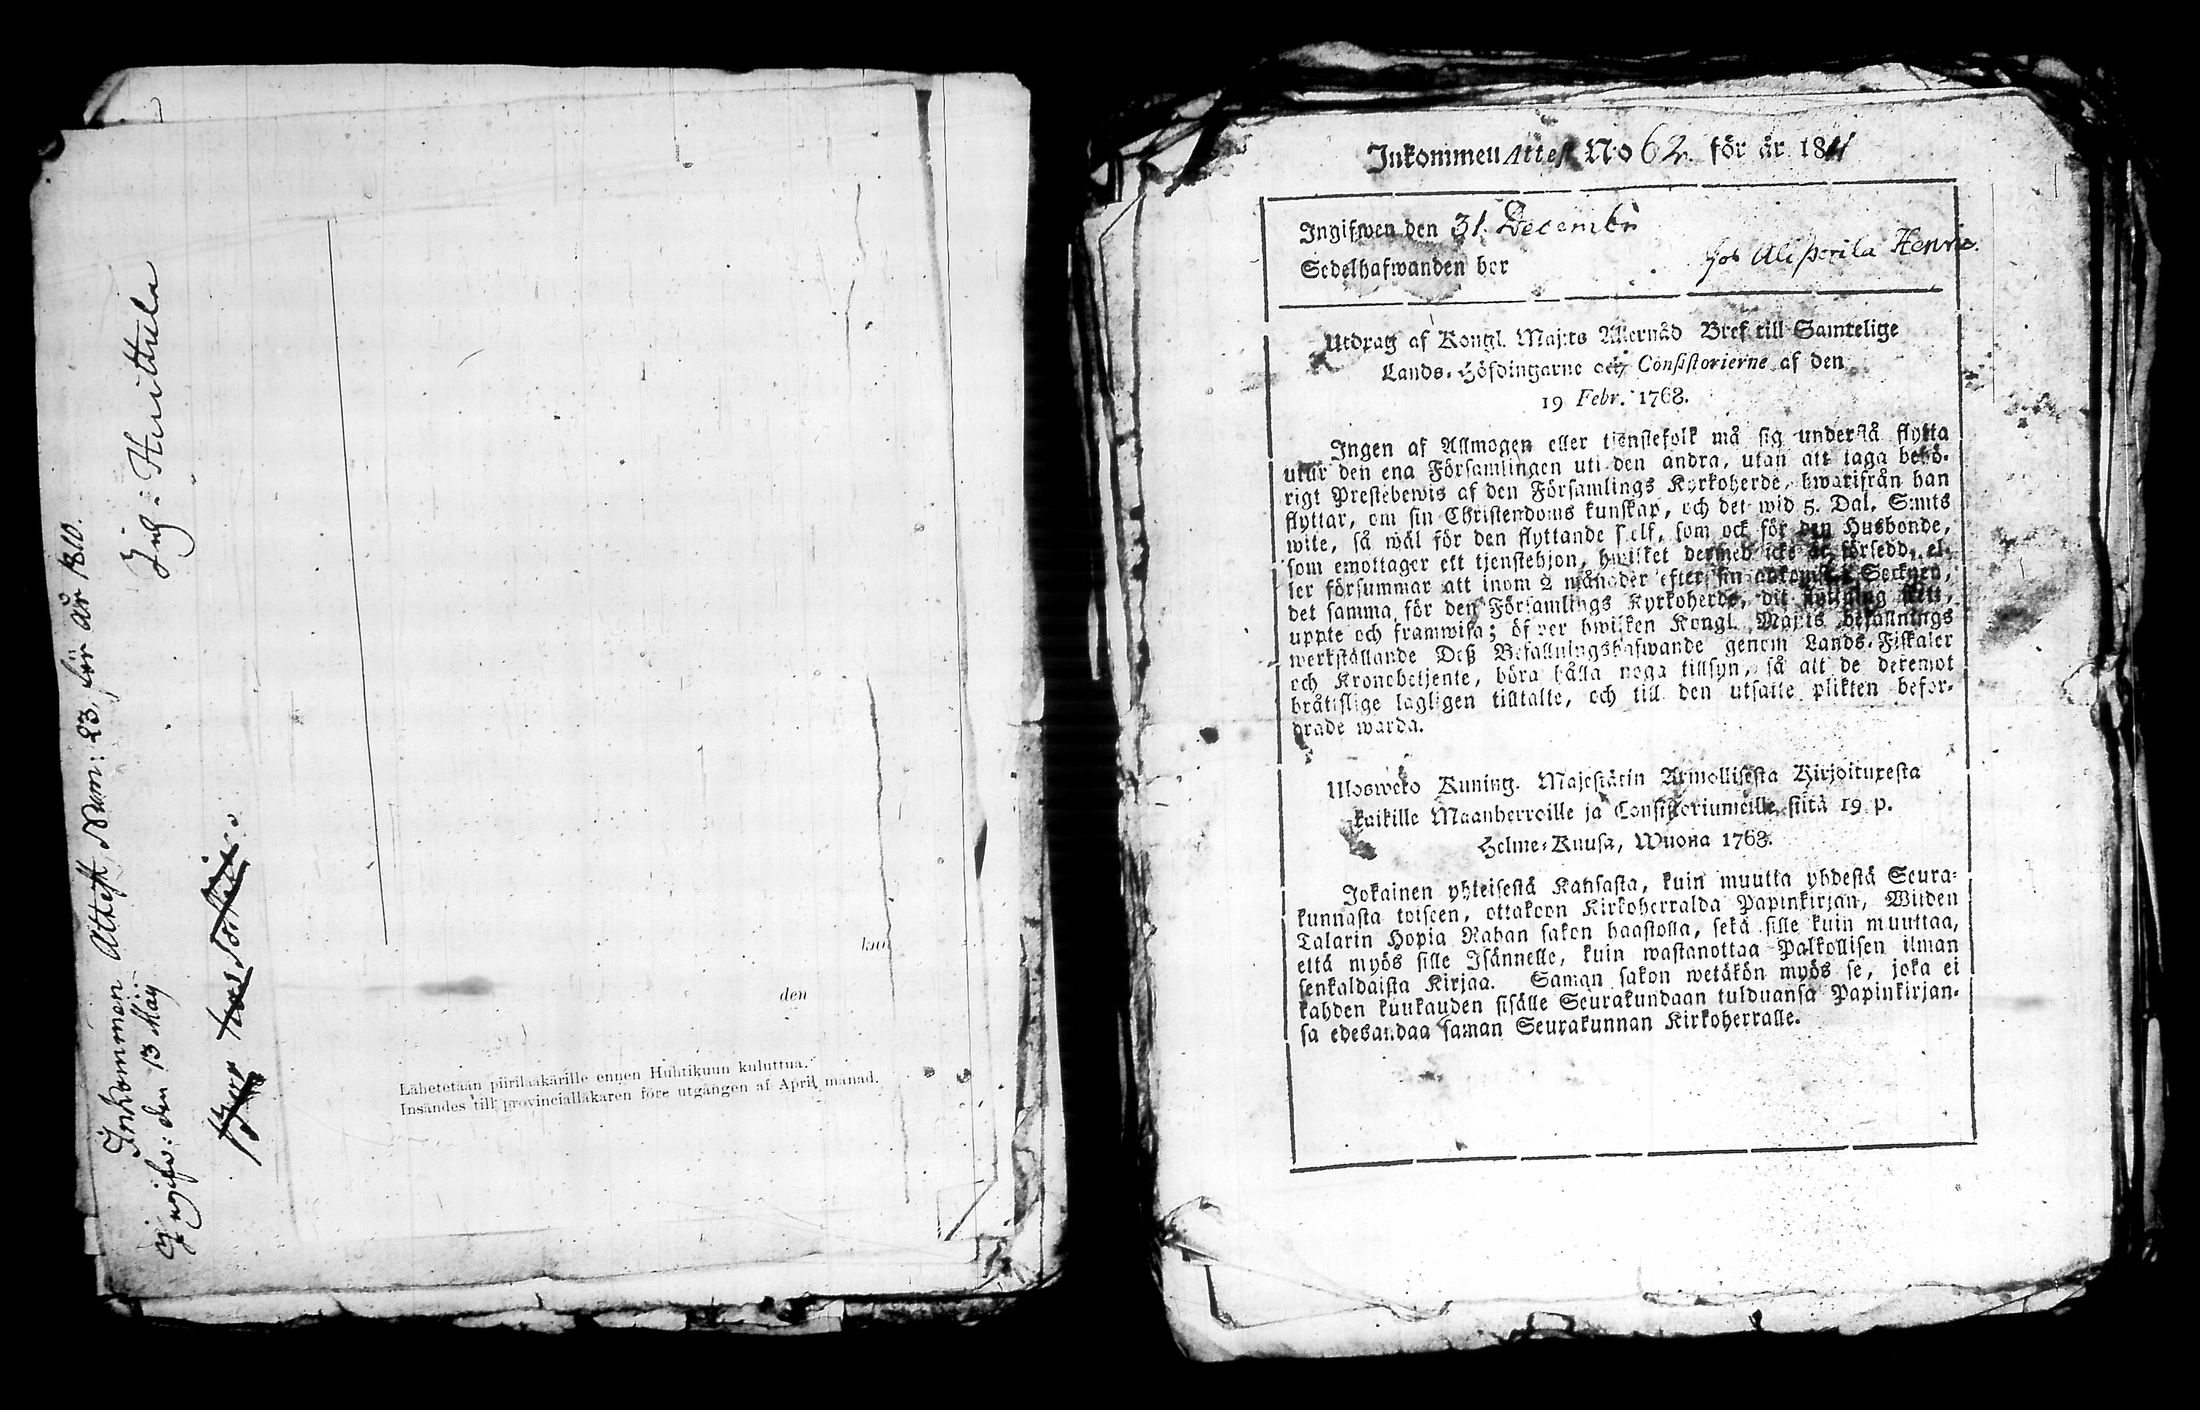 Inkommen Attest, Num: 23, för år 1810.
Ingifv: den 13 Maij
Ing: Huittula
kuu
den
Lähetetään piirilääkärille ennen Huhtikuun kuluttua.
Insändes till provincialläkaren före utgången af April månad.
Inkommen Attest No 62. för år 1811
Ingifwen den 31. Decembr
Sedelhafwanden bor hos Aliperila Henric.
Utdrag af Kongl. Maj:ts Allernåd Bref till Samtelige
Lands-Höfdingarne och Consistorierne af den
19 Febr. 1768.
Ingen af Allmogen eller tjenstefolk må sig understå flytta
utur den ena Församlingen uti den andra, utan att taga behö-
rigt Prestebewis af den Församlings Kyrkoherde, hwarifrån han
flyttar, om sin Christendoms kunskap, och det wid 5. Dal. S:mts
wite, så wäl för den flyttande sjelf, som ock för den Husbonde,
som emottager ett tjenstehjon, hwilket dermed icke är försedd, el-
ler försummar att inom 2 månader efter sin ankomst i Socknen,
det samma för den Församlings Kyrkoherde, dit flyttning skett,
uppte och framwisa; öfwer hwilken Kongl. Maj:ts befallnings
werkställande Deß Befallningshafwande genom Lands-Fiskaler
och Kronobetjente, böra hålla noga tillsyn, så att de deremot
bråtislige lagligen tilltalte, och till den utsatte plikten befor-
drade warda.
Ulosweto Kuning. Majestätin Armollisesta Kirjoituxesta
kaikille Maanherroille ja Consistoriumeille siitä 19 p.
Helme-Kuusa, Wuona 1768.
Jokainen yhteisestä Kansasta, kuin muutta yhdestä Seura-
kunnasta toiseen, ottakoon Kirkoherralda Papinkirjan, Wiiden
Talarin Hopia Rahan sakon haastolla, sekä sille kuin muuttaa,
että myös sille Isännelle, kuin wastanottaa Palkollisen ilman
senkaldaista Kirjaa. Saman sakon wetäkön myös se, joka ei
kahden kuukauden sisälle Seurakundaan tulduansa Papinkirjan-
sa edesandaa saman Seurakunnan Kirkoherralle.